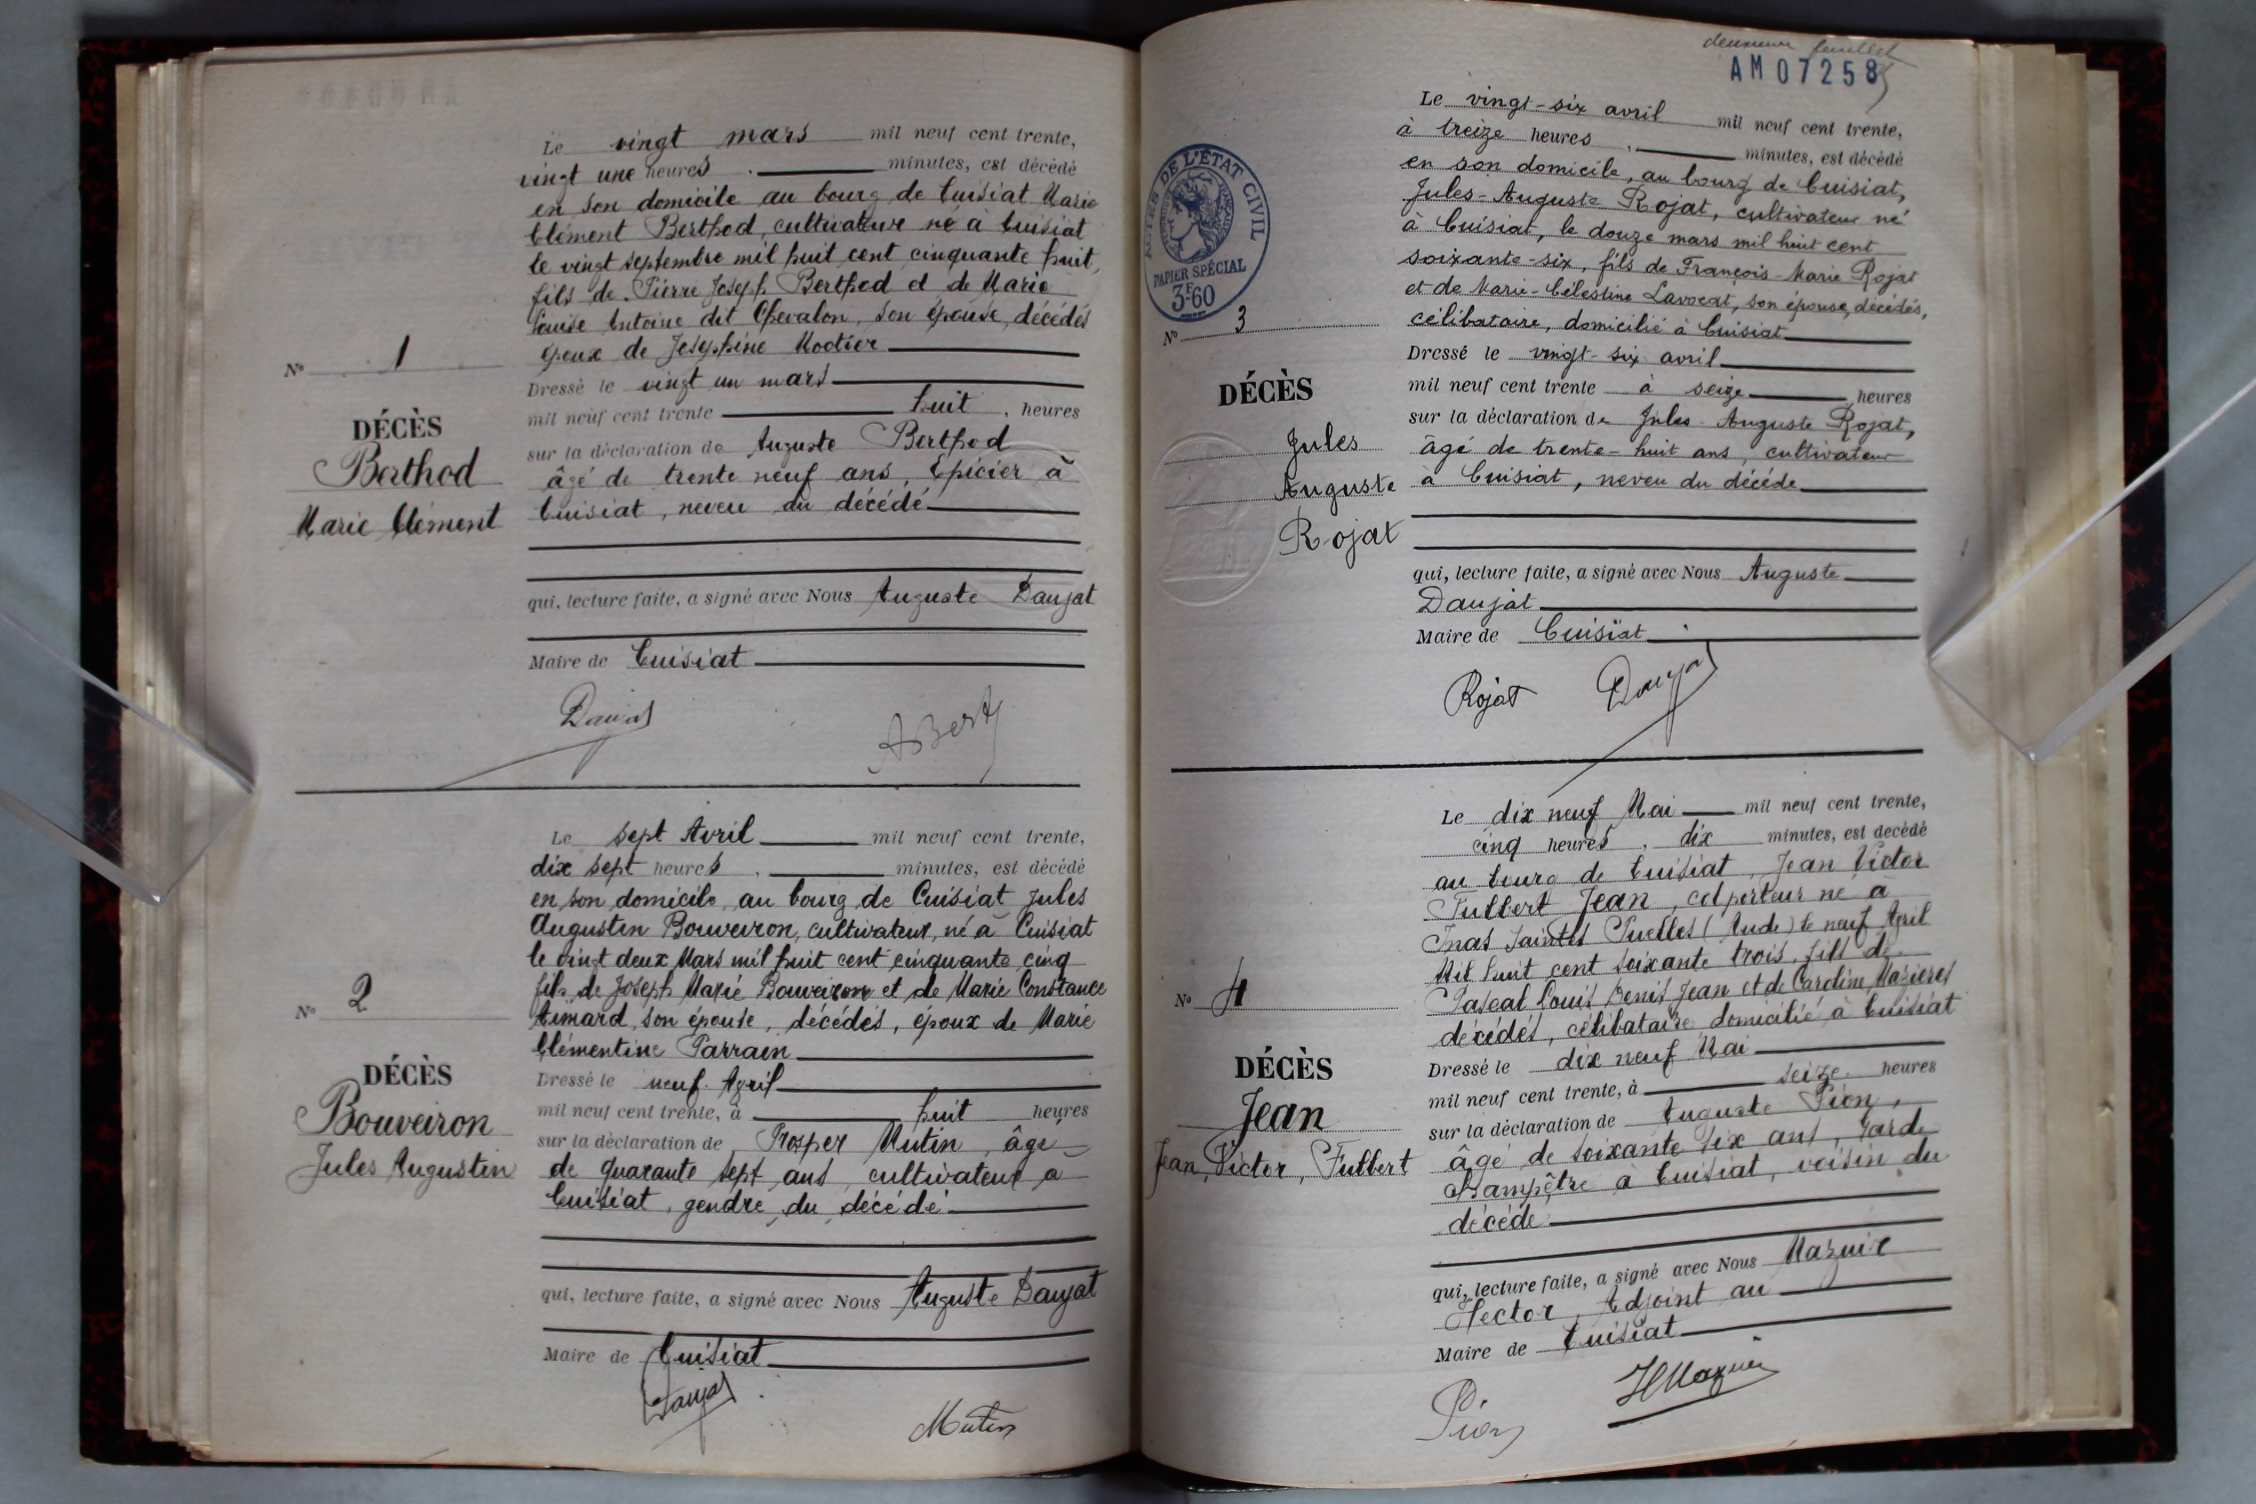 Le vingt mars mil neuf cent trente,
vingt une heures minutes, est décédé
en son domicile au bourg de Cuisiat Marie
Clément Berthod, cultivateur né à Cuisiat
le vingt septembre mil huit cent cinquante huit,
fils de Pierre Joseph Berthod et de Marie
Louise Antoine dit Chevalon, son épouse, décédés
époux de Joséphine
Nº 1
Dressé le vingt un mars
mil neuf cent trente huit heures
DÉCÈS
Berthod
Marie Clément
sur la déclaration de Auguste Berthod
âgé de trente neuf ans, Epicier à
Cuisiat, neveu du décédé
qui, lecture faite, a signé avec Nous Auguste Daujat
Maire de Cuisiat
Daujat
ABert
Le sept Avril mil neuf cent trente,
dix sept heures minutes, est décédé
en son domicile au bourg de Cuisiat Jules
Augustin Bouveiron, cultivateur, né à Cuisiat
le vingt deux Mars mil huit cent cinquante cinq
fils de Joseph Marie Bouveiron et de Marie Constance
Nº 2
Aimard son épouse, décédés, époux de Marie
Clémentine Parrain
DÉCÈS
Bouveiron
Jules Augustin
Dressé le neuf Avril
mil neuf cent trente, à huit heures
sur la déclaration de Prosper Mutin, âgé
de quarante sept ans, cultivateur a
Cuisiat, gendre du décédé
qui, lecture faite, a signé avec Nous Auguste Daujat
Maire de Cuisiat
Daujat
Mutin
deuxième feuillet
AM07258
ACTES DE L'ÉTAT CIVIL
PAPIER SPÉCIAL
3F60
Le vingt-six avril mil neuf cent trente,
à treize heures minutes, est décédé
en son domicile, au bourg de Cuisiat,
Jules-Auguste Rojat, cultivateur né
à Cuisiat, le douze mars mil huit cent
soixante-six, fils de François-Marie Rojat
et de Marie-Célestine Lavocat, son épouse, décédés,
célibataire, domicilié à Cuisiat
Nº 3
DÉCÈS
Jules
Auguste
Rojat
Dressé le vingt-six avril
mil neuf cent trente à seize heures
sur la déclaration de Jules Auguste Rojat,
âgé de trente-huit ans, cultivateur
à Cuisiat, neveu du décédé
qui, lecture faite, a signé avec Nous Auguste
Daujat
Maire de Cuisiat
Rojat Daujat
Le dix neuf Mai mil neuf cent trente,
cinq heures, dix minutes, est décédé
au bourg de Cuisiat, Jean Victor
Fulbert Jean, colporteur né à
Mas Saintes Puelles (Aude) le neuf Avril
Mil huit cent soixante trois, fils de
Pascal Louis Denis Jean et de Caroline Mazieres
décédés, célibataire domicilié à Cuisiat
Nº 4
DÉCÈS
Jean
Jean, Victor, Fulbert
Dressé le dix neuf Mai
mil neuf cent trente, à seize heures
sur la déclaration de Auguste Pion,
âgé de soixante six ans, garde
champêtre à Cuisiat, voisin du
décédé
qui, lecture faite, a signé avec Nous Mazuir
Hector, Adjoint au
Maire de Cuisiat
Pion HMazuir